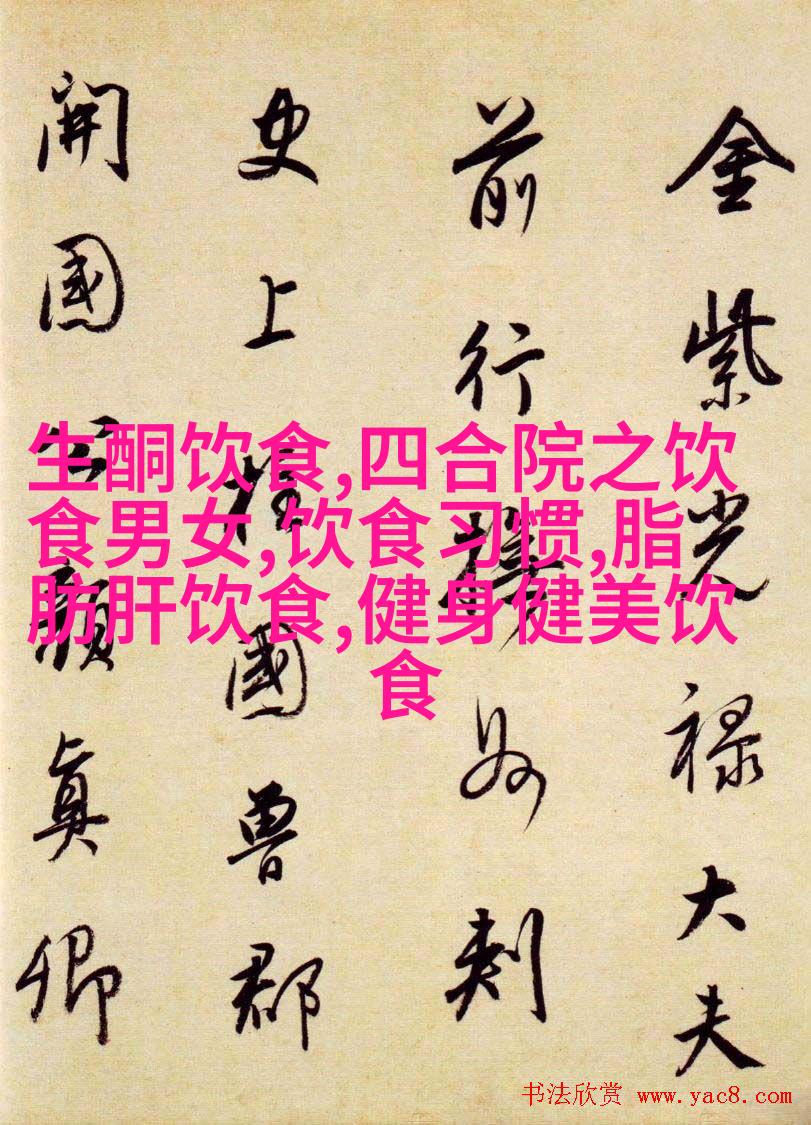 金紫光禄大夫
前行撫州刺
史上柱國魯郡
開國公顏真卿
生酮饮食,四合院之饮
食男女,饮食习惯,脂
肪肝饮食,健身健美饮
食
书法欣赏 www.yac8.com